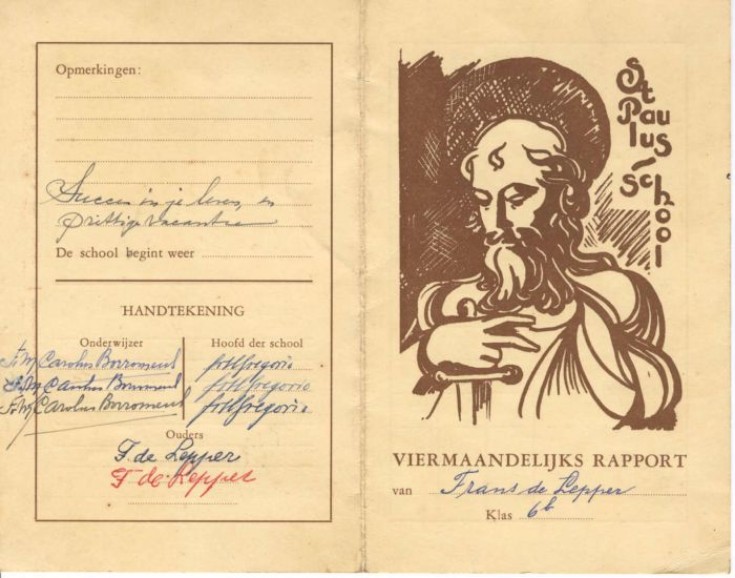 Opmerkingen:
Succes in je leven, en
prettige vacantie
De school begint weer
HANDTEKENING
Onderwijzer
Hoofd der school
Fr. M. Carolus Borromeus
Fr. M. Carolus Borromeus
Fr. M. Carolus Borromeus
fr M Gregorio
fr M Gregorio
fr M Gregorio
Ouders
F. de Lepper
F de Lepper
St
Pau
lus-
school
VIERMAANDELIJKS RAPPORT
van Frans de Lepper
Klas 6b